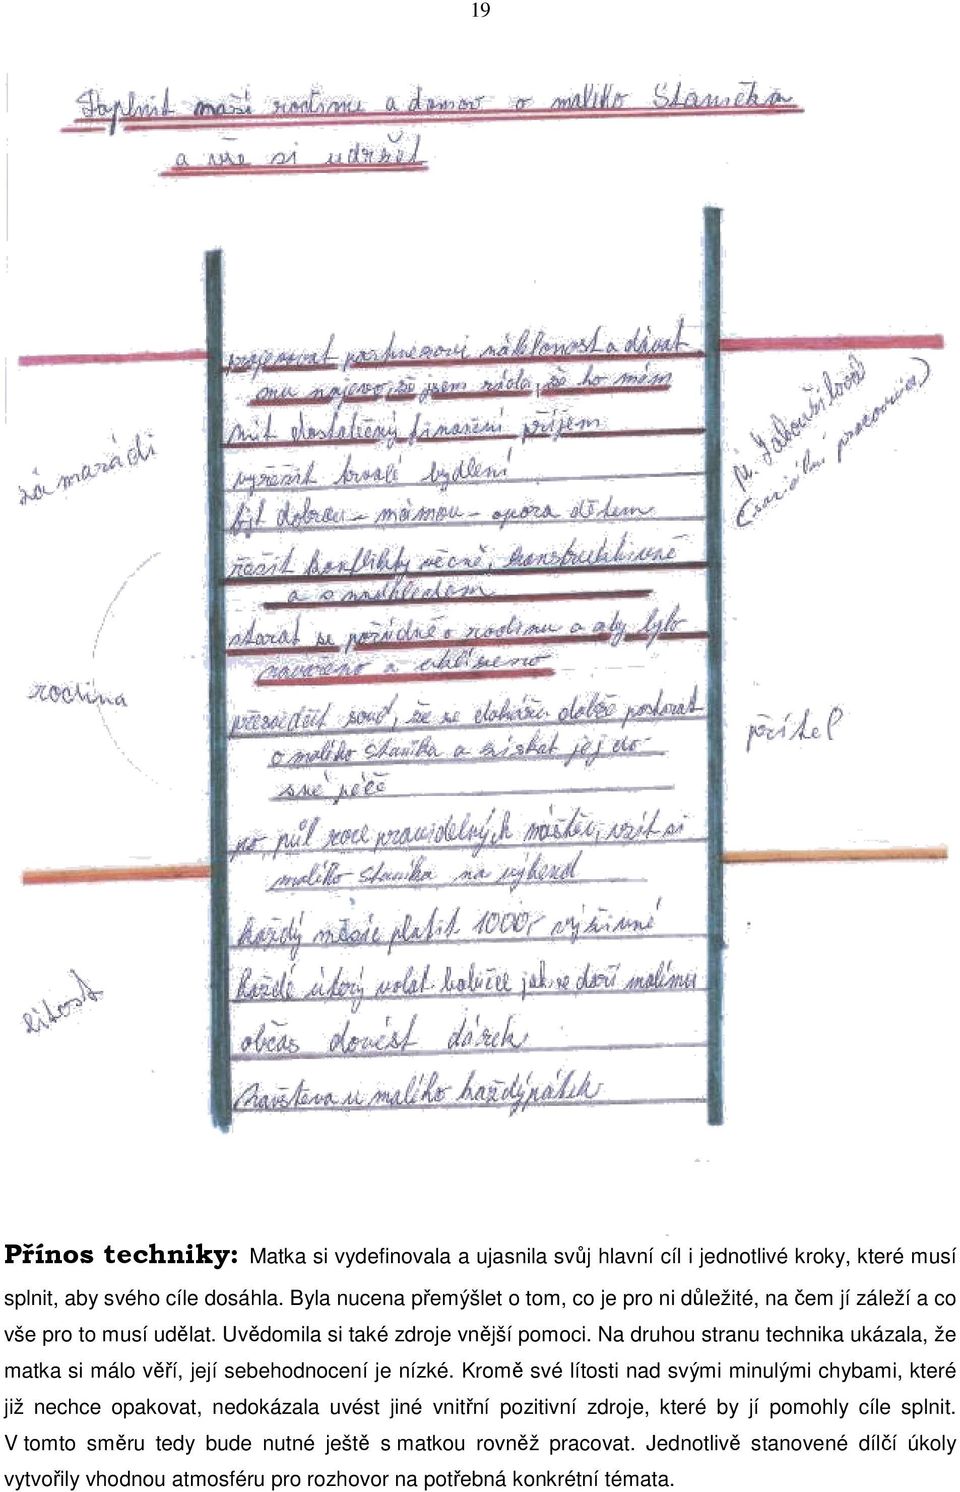 19
Doplnit naši rodinu a domov o malého Stanečka
a vše si udržet
projevovat partnerovi náklonost a dávat
mu najevo, že jsem ráda, že ho mám
mít dostatečný finanční příjem
vyřešit trvalé bydlení
být dobrou - mámou - opora dětem
řešit konflikty věcně, konstruktivně
a s nadhledem
starat se pořádně o rodinu a aby bylo
navařeno a uklizeno
přesvědčit soud, že se dokážu dobře postarat
o malého Staníka a získat jej do
své péče
po půl roce pravidelných návštěv, vzít si
malého Staníka na výkend
každý měsíc platit 1000,- výživné
každé úterý volat babičce jak se daří malému
občas dovést dárek
návštěva u malého každý pátek
kámarádi
rodina
lítost
(sociální pracovnice)
přítel
Přínos techniky: Matka si vydefinovala a ujasnila svůj hlavní cíl i jednotlivé kroky, které musí
splnit, aby svého cíle dosáhla. Byla nucena přemýšlet o tom, co je pro ni důležité, na čem jí záleží a co
vše pro to musí udělat. Uvědomila si také zdroje vnější pomoci. Na druhou stranu technika ukázala, že
matka si málo věří, její sebehodnocení je nízké. Kromě své lítosti nad svými minulými chybami, které
již nechce opakovat, nedokázala uvést jiné vnitřní pozitivní zdroje, které by jí pomohly cíle splnit.
V tomto směru tedy bude nutné ještě s matkou rovněž pracovat. Jednotlivě stanovené dílčí úkoly
vytvořily vhodnou atmosféru pro rozhovor na potřebná konkrétní témata.